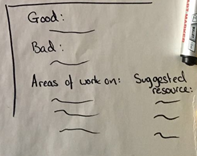 Good:
Bad:
Areas of work on: Suggested
resource: